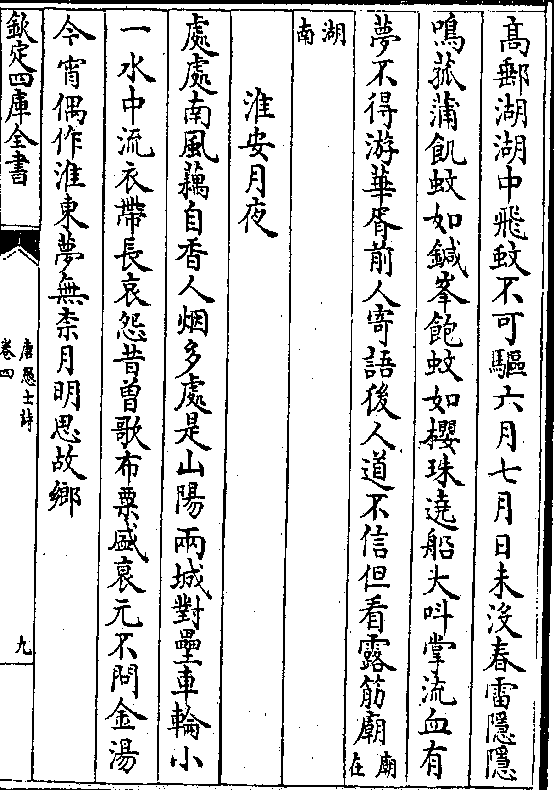 高郵湖湖中飛蚊不可驅六月七月日未沒春雷隱隱
鳴菰蒲飢蚊如鍼峯飽蚊如櫻珠遶船大呌掌流血有
夢不得游華胥前人寄語後人道不信但看露筋廟廟在
湖南
淮安月夜
處處南風藕自香人烟多處是山陽兩城對壘車輪小
一水中流衣帶長哀怨昔曾歌布粟盛衰元不問金湯
今宵偶作淮東夢無柰月明思故鄉
欽定四庫全書
唐愚士詩
卷四
九